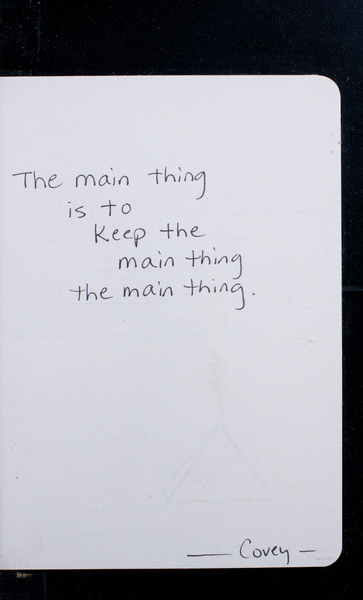 The main thing
is to
Keep the
main thing
the main thing.
— Covey —